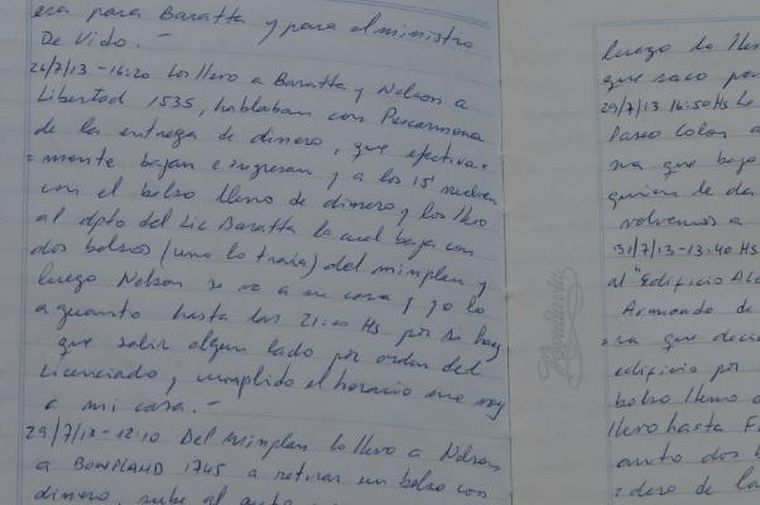 era para Baratta y para el ministro
De Vido.-
26/7/13-16:20 los llevo a Baratta y Nelson a
Libertad 1535, hablaban con Pescarmona
de la entrega de dinero, que efectiva-
=mente bajan e ingresan y a los 15' vuelven
con el bolso lleno de dinero y los llevo
al dpto del Lic Baratta lo cual baja con
dos bolsos (uno lo traía) del minplan y
luego Nelson se va a su casa y yo lo
aguanto hasta las 21:00 Hs por si hay
que salir algun lado por orden del
Licenciado, y cumplido el horario me voy
a mi casa.-
29/7/13-12:10 Del minplan lo llevo a Nelson
a BONPLAND 1745 a retirar un bolso con
dinero, sube al auto
luego lo
que saco
29/7/13 16:50 Hs Lo
Paseo Colon a
que bajo
quien le da
volvemos a
31/7/13-13:40 Hs
al "Edificio
Armando de
que
edificio por
bolso lleno
llevo hasta
auto dos
=dero de la